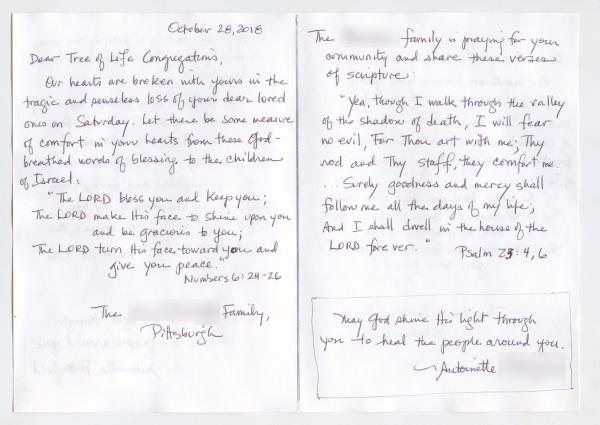 October 28, 2018
Dear Tree of Life Congregations,
Our hearts are broken with yours in the
tragic and senseless loss of your dear loved
ones on Saturday. Let there be some measure
of comfort in your hearts from these God-
breathed words of blessing to the children
of Israel:
"The LORD bless you and keep you;
The LORD make His face to shine upon you
and be gracious to you;
The LORD turn His face toward you and
give you peace."
Numbers 6:24-26
The Family,
Pittsburgh
The family is praying for your
community and share these verses
of scripture:
"Yea, though I walk through the valley
of the shadow of death, I will fear
no evil, For Thou art with me; Thy
rod and Thy staff, they comfort me.
... Surely goodness and mercy shall
follow me all the days of my life;
And I shall dwell in the house of the
LORD forever."
Psalm 23:4,6
May God shine His light through
you to heal the people around you.
~Antoinette